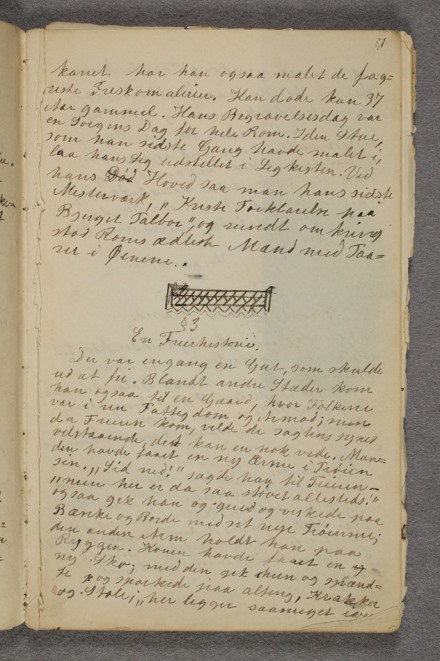 51
kanet har han ogsaa malet de fag=
reste Freskomalerier. Han døde kun 37
Aar gammel. Hans Begravelsesdag var
en Sorgens Dag for hele Rom. I den Stue,
som han sidste Gang havde malet i,
laa hans Lig udstillet i Ligkisten. Ved
hans Hoved saa man hans sidste
Mesterværk, "Kristi Forklarelse paa
Bjerget Tabor", og rundt omkring
stod Roms ædleste Mænd med Taa=
rer i Øinene.
§ 3
En Frierhistorie.
Der var engang en Gut, som skulde
ud at fri. Blandt andre Stæder kom
han ogsaa til en Gaard, hvor Folkene
var i en Fattigdom og Armod; men
da Frieren kom, vilde de sagtens synes
velstaaende, det kan en nok vide. Man=
den havde faaet en ny Ærme i Trøien
sin. "Sid ned," sagde han til Frieren
"men her er da saa støvet allesteds."
Og saa gik han og gned og viskede paa
Bænke og Borde med sit nye Trøierme;
den anden Arm holdt han paa
Ryggen. Konen havde faaet en
ny Sko; med den gik hun og spænd=
te og sparkede paa alting, Krakker
og Stole; "her ligger saameget